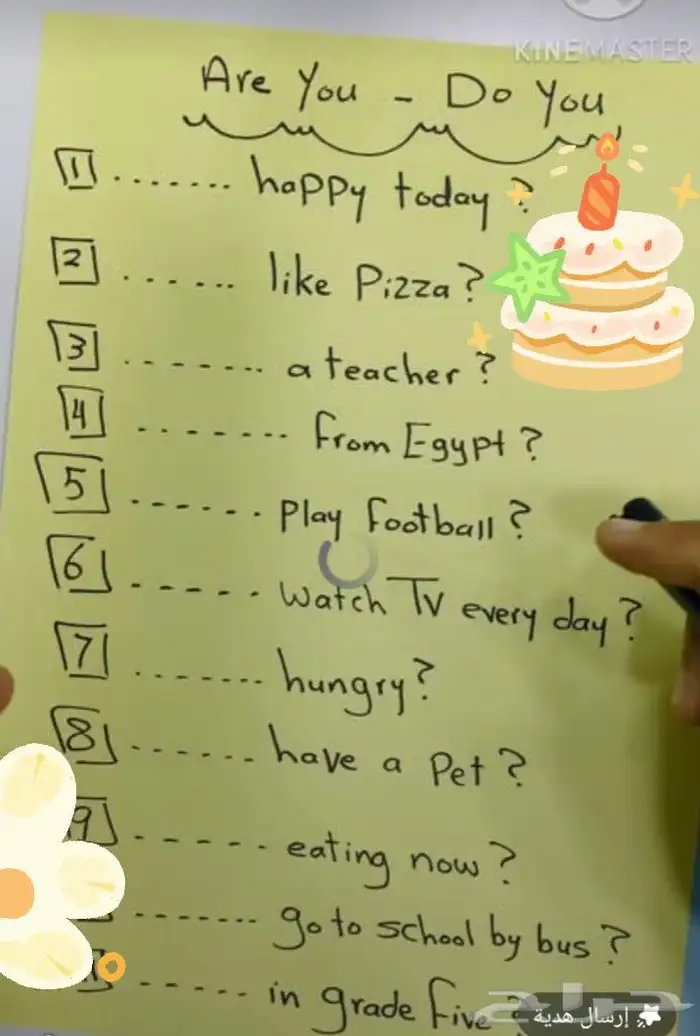 KINEMASTER
Are You - Do You
1 ....... happy today ?
2 ...... like Pizza ?
3 ........ a teacher ?
4 ........ from Egypt ?
5 ....... Play football ?
6 ...... watch TV every day ?
7 ....... hungry ?
8 ...... have a Pet ?
9 ...... eating now ?
....... go to school by bus ?
...... in grade five ?
إرسال هدية